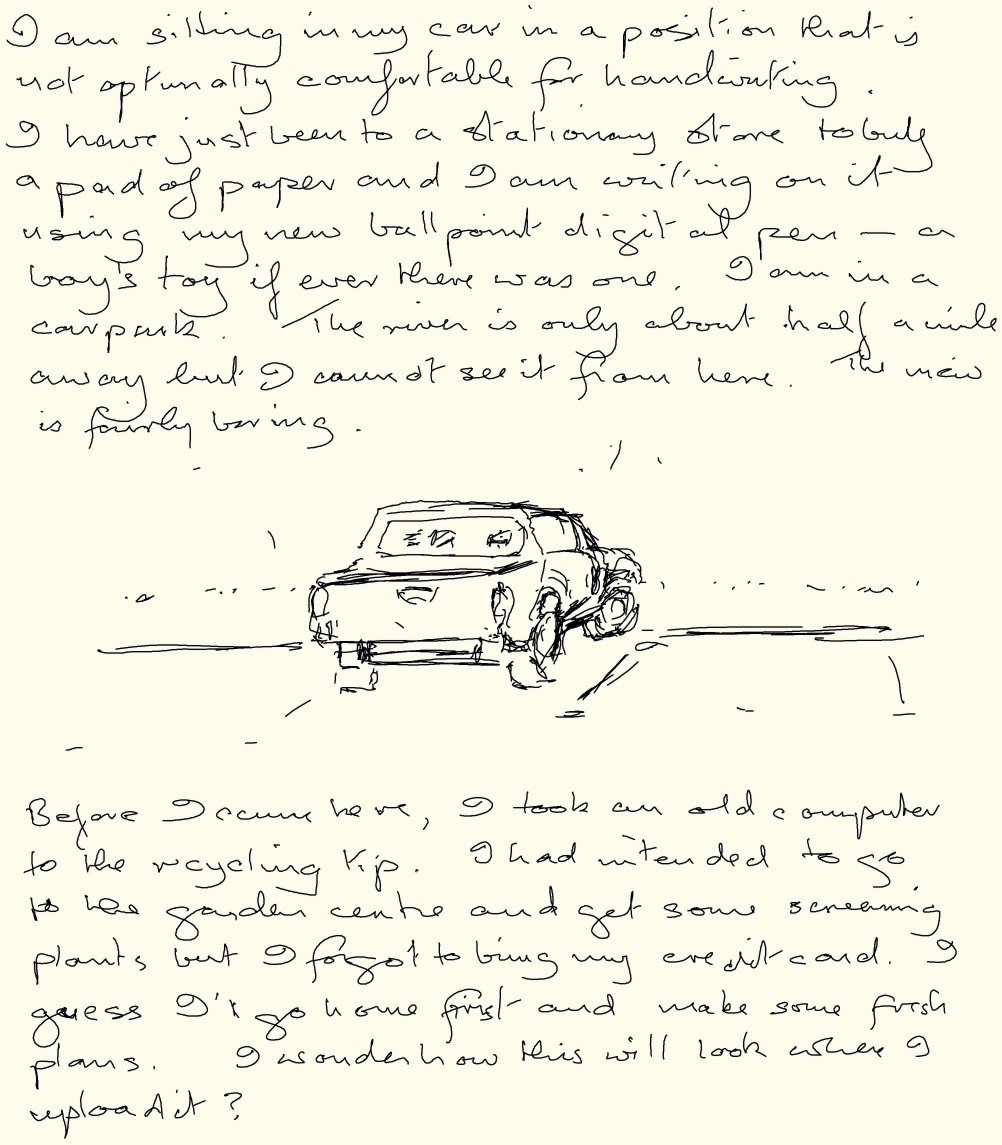 I am sitting in my car in a position that is
not optimally comfortable for handwriting.
I have just been to a stationary store to buy
a pad of paper and I am writing on it
using my new ballpoint digital pen – a
boy's toy if ever there was one. I am in a
carpark. The river is only about half a mile
away but I cannot see it from here. The view
is fairly boring.
Before I came here, I took an old computer
to the recycling tip. I had intended to go
to the garden centre and get some screening
plants but I forgot to bring my credit card. I
guess I'll go home first and make some fresh
plans. I wonder how this will look when I
upload it?